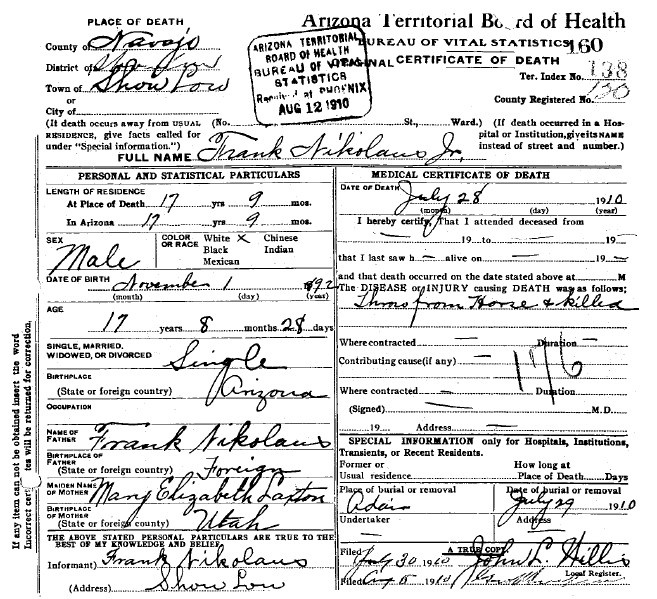 PLACE OF DEATH
County of Navajo
District of
Town of Show Low
or
City of
ARIZONA TERRITORIAL
BOARD OF HEALTH
BUREAU OF VITAL
STATISTICS
Received at PHOENIX
AUG 12 1910
Arizona Territorial Board of Health
BUREAU OF VITAL STATISTICS 160
ORIGINAL CERTIFICATE OF DEATH
Ter. Index No. 138
County Registered No. 130
(If death occurs away from USUAL
RESIDENCE, give facts called for
under "Special information.")
(No. St., Ward.)
(If death occurred in a Hos-
pital or Institution, give its NAME
instead of street and number.)
FULL NAME Frank Nikolaus Jr.
PERSONAL AND STATISTICAL PARTICULARS
LENGTH OF RESIDENCE
At Place of Death 17 yrs 9 mos.
In Arizona 17 yrs 9 mos.
SEX
Male
COLOR
OR RACE
White X Chinese
Black Indian
Mexican
DATE OF BIRTH November 1 1892
(month) (day) (year)
AGE
17 years 8 months 28 days
SINGLE, MARRIED,
WIDOWED, OR DIVORCED Single
BIRTHPLACE
(State or foreign country) Arizona
OCCUPATION
NAME OF
FATHER Frank Nikolaus
BIRTHPLACE OF
FATHER
(State or foreign country) Foreign
MAIDEN NAME
OF MOTHER Mary Elizabeth Laxton
BIRTHPLACE
OF MOTHER
(State or foreign country) Utah
THE ABOVE STATED PERSONAL PARTICULARS ARE TRUE TO THE
BEST OF MY KNOWLEDGE AND BELIEF.
Informant) Frank Nikolaus
(Address) Show Low
MEDICAL CERTIFICATE OF DEATH
DATE OF DEATH July 28 1910
(month) (day) (year)
I hereby certify, That I attended deceased from
— 19 — to — 19 —
that I last saw h — alive on — 19 —
and that death occurred on the date stated above at M
The DISEASE or INJURY causing DEATH was as follows:
Thrown from Horse & killed
Where contracted — Duration —
Contributing cause (if any) —
176
Where contracted — Duration
(Signed) — M.D.
19 Address —
SPECIAL INFORMATION only for Hospitals, Institutions,
Transients, or Recent Residents.
Former or
Usual residence
How long at
Place of Death Days
Place of burial or removal
Adair
Date of burial or removal
July 29 1910
Undertaker
—
Address
—
Filed July 30 1910 A TRUE COPY. John L. Willis
Local Register.
Filed Aug 5 1910
If any item can not be obtained insert the word
Incorrect certificates will be returned for correction.